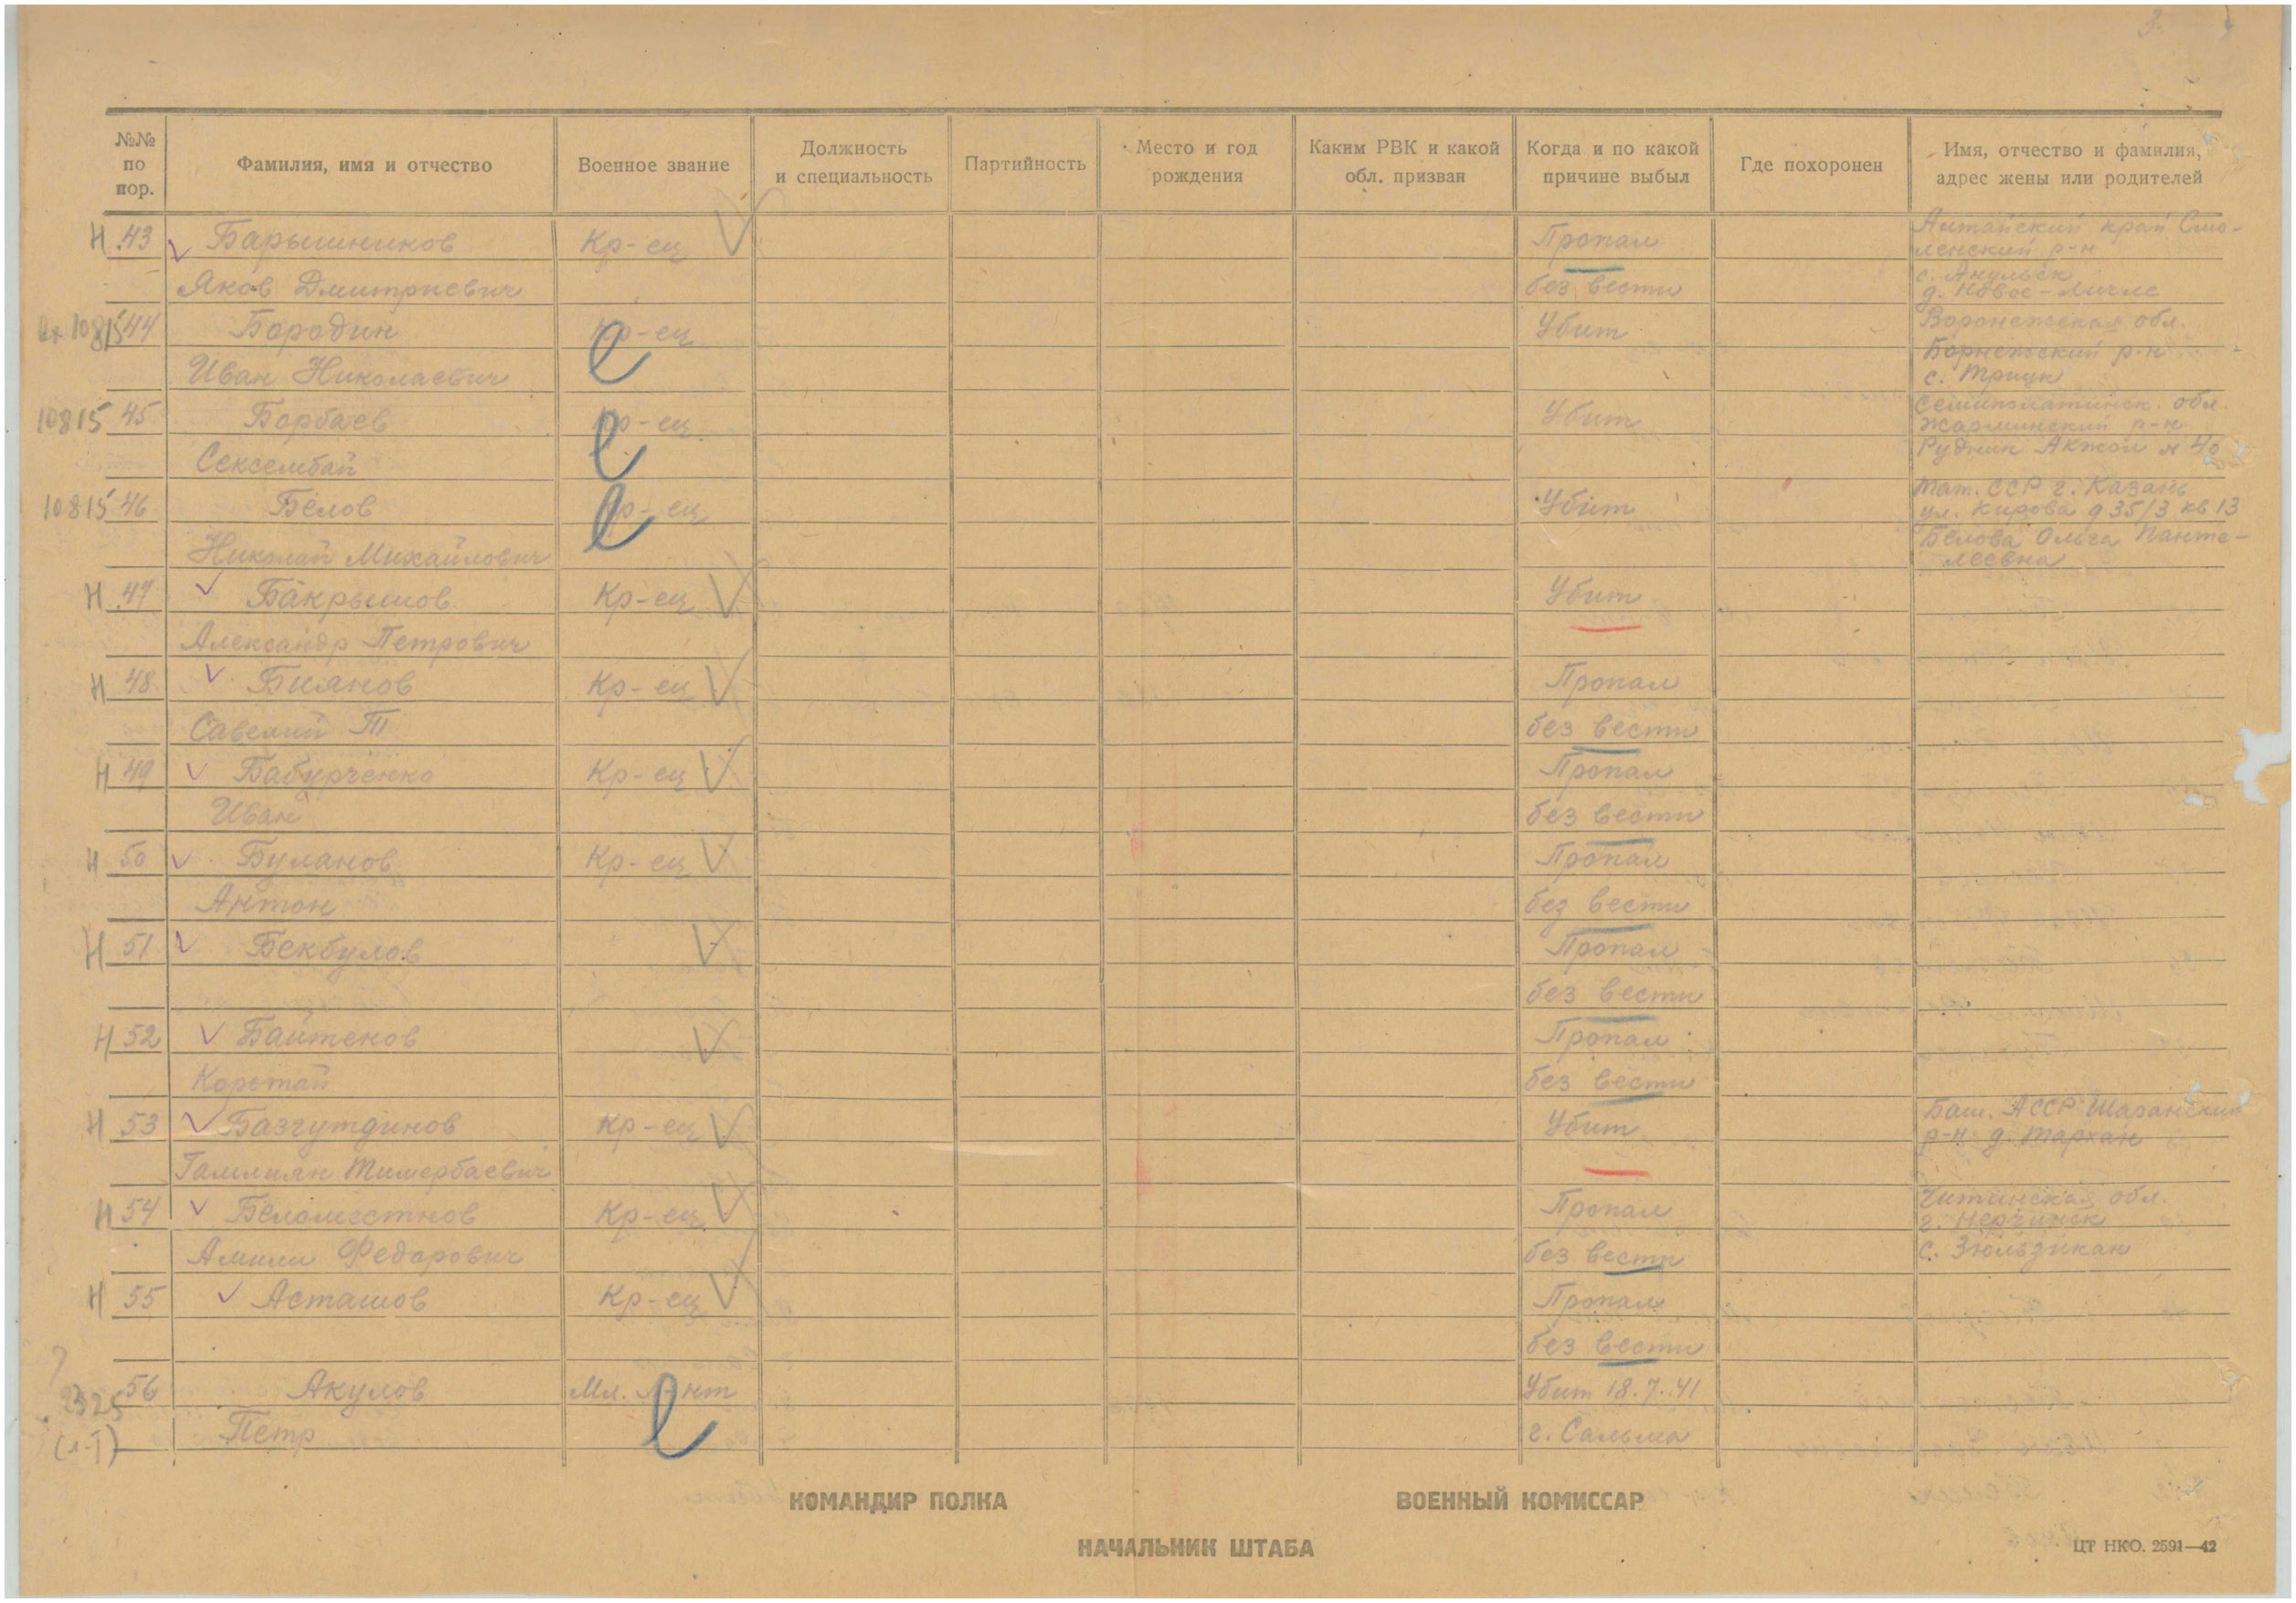 3.
№№ по пор.
Фамилия, имя и отчество
Военное звание
Должность и специальность
Партийность
Место и год рождения
Каким РВК и какой обл. призван
Когда и по какой причине выбыл
Где похоронен
Имя, отчество и фамилия, адрес жены или родителей
Н 43 Барышников Кр-ец Пропал Алтайский край Смо-
ленский р-н
Яков Дмитриевич без вести с.
д. Новое-
10815 44 Бородин Кр-ец Убит Воронежская обл.
р-н
Иван Николаевич с.
10815 45 Борбаев Кр-ец Убит Семипалатинск. обл.
Жарминский р-н
Сексембай Рудник Акжал № 40
10815 46 Белов Кр-ец Убит Тат. ССР г. Казань
ул. Кирова д 35/3 кв 13
Николай Михайлович Белова Ольга Панте-
леевна
Н 47 Бакрышов Кр-ец Убит
Александр Петрович
Н 48 Биянов Кр-ец Пропал
Савелий Т без вести
Н 49 Бабурченко Кр-ец Пропал
Иван без вести
Н 50 Буланов Кр-ец Пропал
Антон без вести
Н 51 Бекбулов Пропал
без вести
Н 52 Байтенов Пропал
Коротай без вести
Н 53 Базгутдинов Кр-ец Убит Баш. АССР Шаранский
р-н д. Тархан
Гамлиян Тимербаевич
Н 54 Беломестнов Кр-ец Пропал Читинская обл.
г. Нерчинск
Федорович без вести с. Зюльзикан
Н 55 Асташов Кр-ец Пропал
без вести
?
2325 56 Акулов Мл. л-нт Убит 18.7.41
(1-I) Петр г. Сальма
КОМАНДИР ПОЛКА ВОЕННЫЙ КОМИССАР
НАЧАЛЬНИК ШТАБА
ЦТ НКО. 2591—42